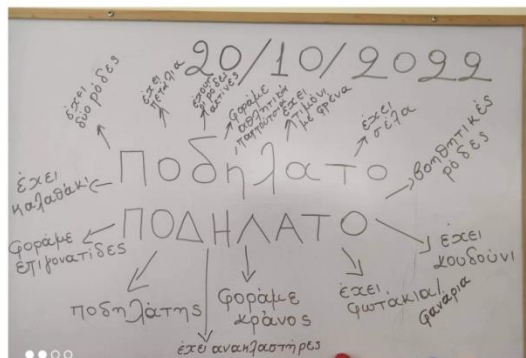 20/10/2022
έχει
δύο ρόδες
έχει
πετάλια
έχουν
οι ρόδες
ακτίνες
φοράμε
αθλητικά
παπούτσια
έχει
τιμόνι
με φρένα
έχει
σέλα
Ποδηλατο
βοηθητικές
ρόδες
έχει
καλαθάκι
ΠΟΔΗΛΑΤΟ
φοράμε
επιγονατίδες
έχει
κουδούνι
ποδηλάτης
φοράμε
κράνος
έχει
φωτάκια/
φανάρια
έχει ανακλαστήρες